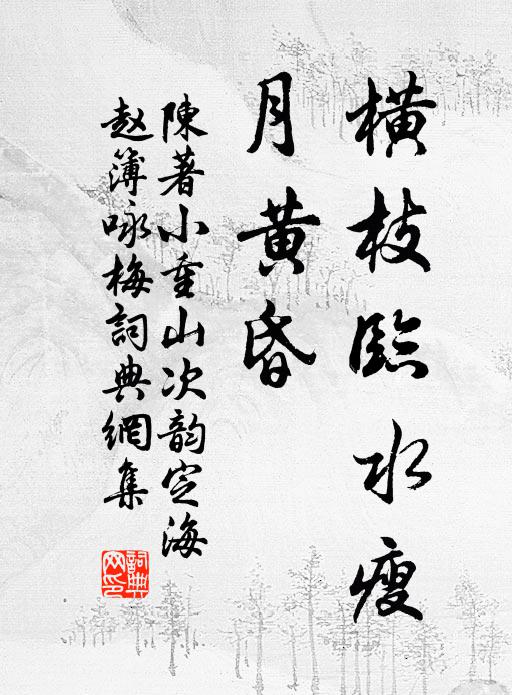 橫枝臨水瘦
月黄昏
陳著小重山次韵定海
赵簿咏梅詞典網集
詞典
网印